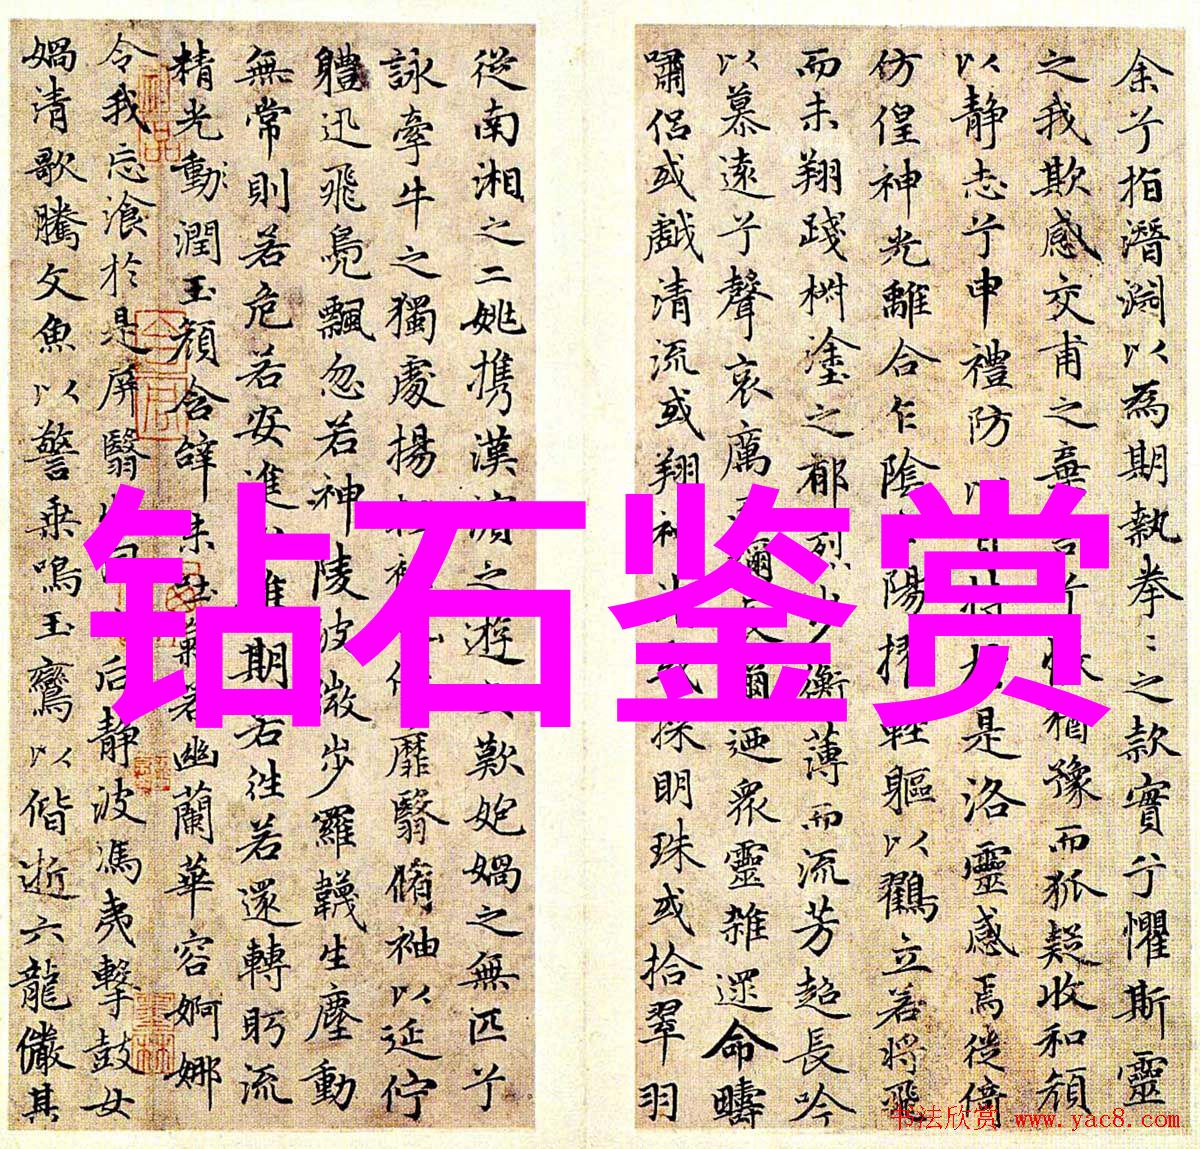 钻石鉴赏
余兮指潛淵以為期執拳〻之款實兮懼斯靈
之我欺感交甫之棄言兮猶豫而狐疑收和顏
以靜志兮申禮防以自持於是洛靈感焉徙倚
仿偟神光離合乍陰陽擢輕軀以鶴立若將飛
而未翔踐椒塗之郁烈步衡薄而流芳超長吟
以慕遠兮聲哀厲而彌長爾迺衆靈雜遝命疇
嘯侶或戲清流或翔神渚或採明珠或拾翠羽
從南湘之二姚攜漢濱之遊女歎匏媧之無匹兮
詠牽牛之獨處揚輕袿猗靡翳脩袖以延佇
體迅飛鳧飄忽若神陵波微步羅韈生塵動
無常則若危若安進難期若往若還轉眄流
精光動潤玉顏含辭未吐氣若幽蘭華容婀娜
令我忘飡於是屏翳收川后靜波馮夷擊鼓女
媧清歌騰文魚以警乘鳴玉鸞以偕逝六龍儼其
书法欣赏 www.yac8.com